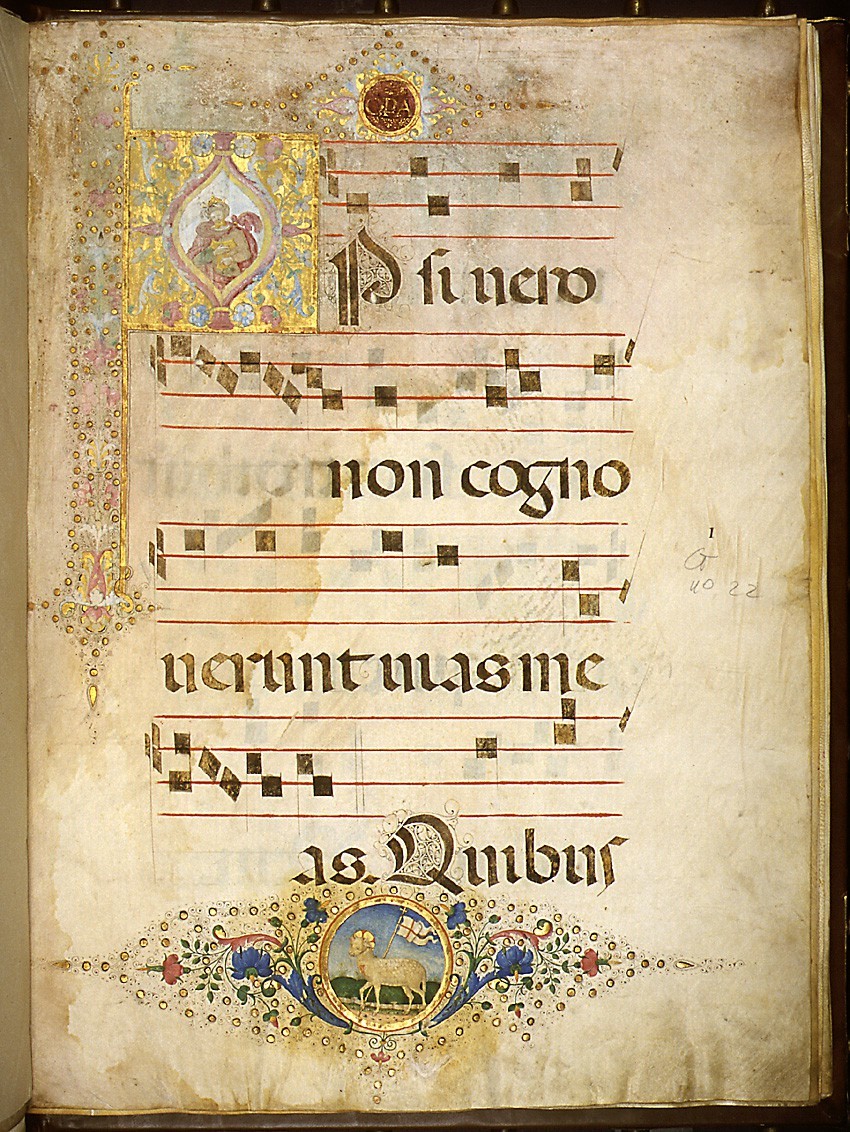 OPA
Psi uero
non cogno
uerunt uias me
as. Quibus
1
no 22